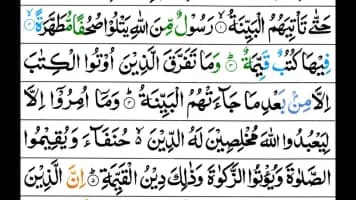 حَتّٰى تَاْتِيَهُمُ الْبَيِّنَةُ ۙ﴿۱﴾ رَسُوْلٌ مِّنَ اللّٰهِ يَتْلُوْا صُحُفًا مُّطَهَّرَةً ۙ﴿۲﴾
فِيْهَا كُتُبٌ قَيِّمَةٌ ؕ﴿۳﴾ وَمَا تَفَرَّقَ الَّذِيْنَ اُوْتُوا الْكِتٰبَ
اِلَّا مِنْۢ بَعْدِ مَا جَآءَتْهُمُ الْبَيِّنَةُ ؕ﴿۴﴾ وَمَاۤ اُمِرُوْۤا اِلَّا
لِيَعْبُدُوا اللّٰهَ مُخْلِصِيْنَ لَهُ الدِّيْنَ ۙ حُنَفَآءَ وَيُقِيْمُوا
الصَّلٰوةَ وَيُؤْتُوا الزَّكٰوةَ وَذٰلِكَ دِيْنُ الْقَيِّمَةِ ؕ﴿۵﴾ اِنَّ الَّذِيْنَ